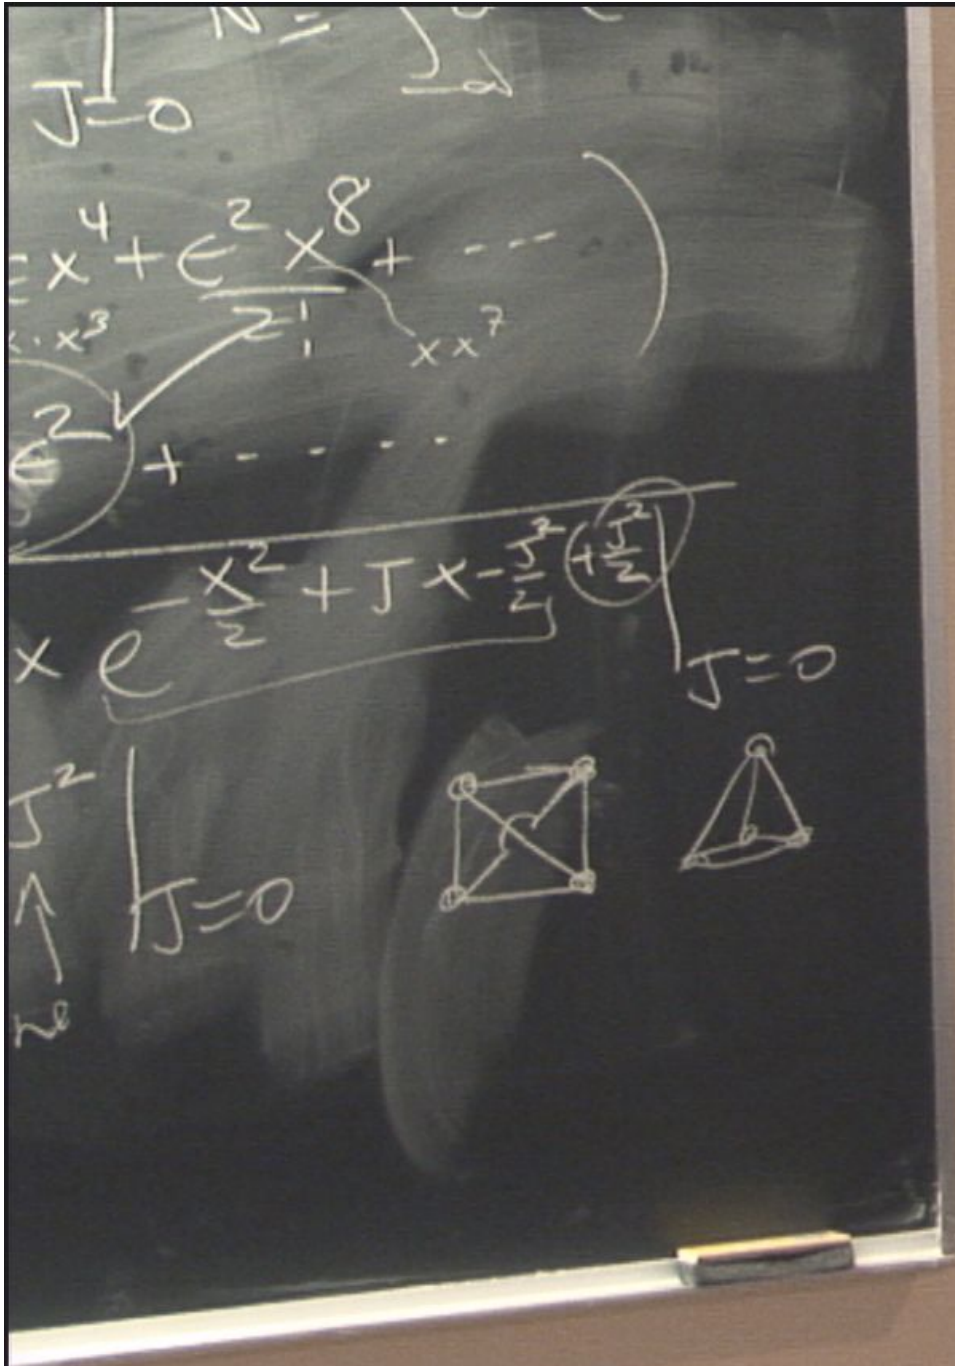 J=0 N = ∫
ϵx⁴ + ϵ²x⁸/2! + ---
x·x³ xx⁷
ϵ² + - - - -
x e^(-x²/2 + Jx - J²/2 + J²/2) | J=0
J² | J=0